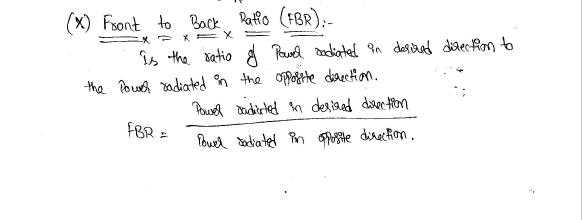 (X) Front to Back Ratio (FBR):-
Is the ratio of Power radiated in desired direction to
the Power radiated in the opposite direction.
FBR = Power radiated in desired direction
Power radiated in opposite direction.